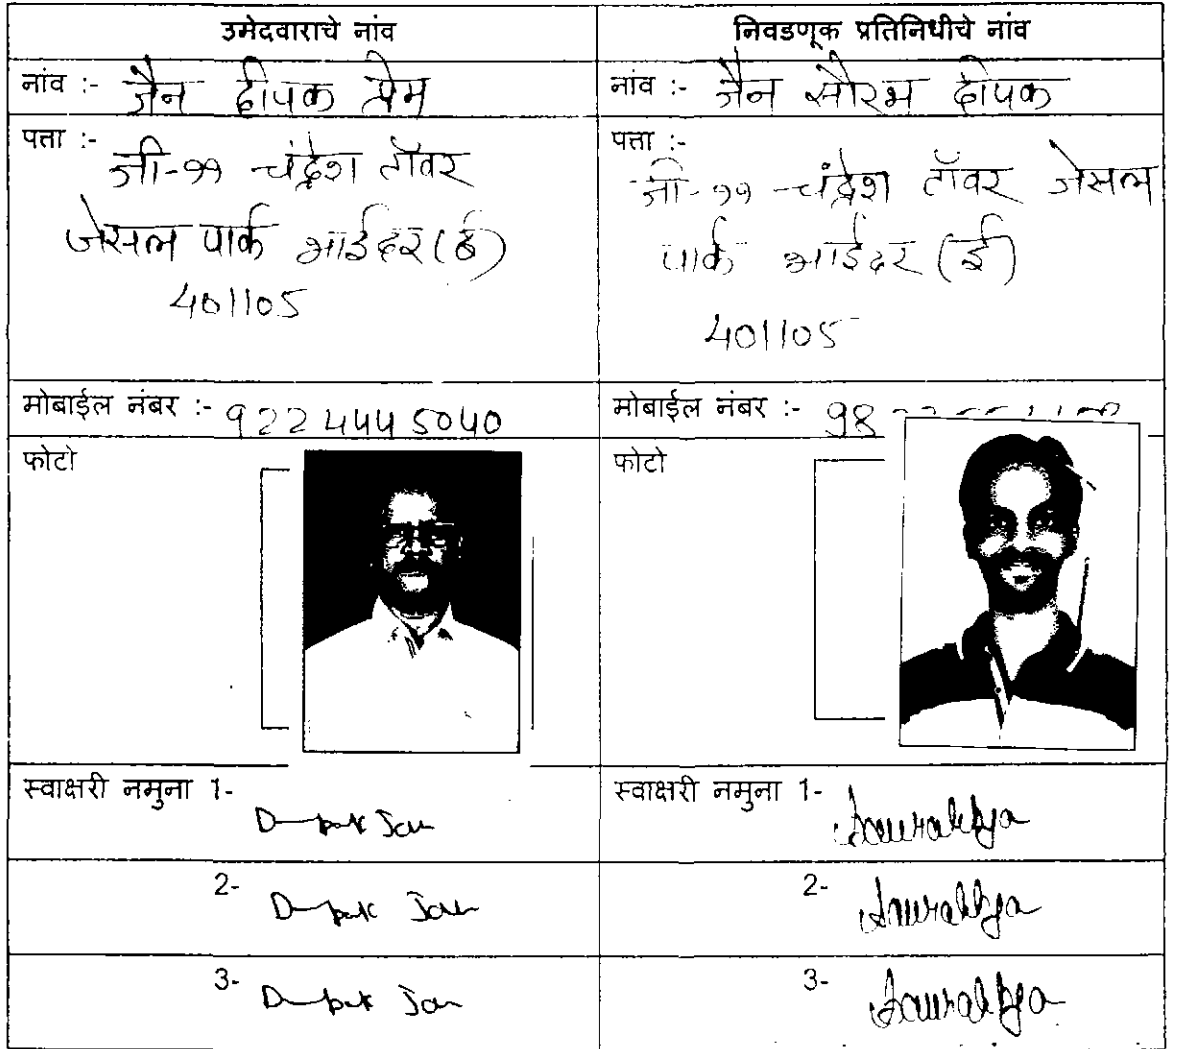 उमेदवाराचे नांव
निवडणूक प्रतिनिधीचे नांव
नांव :- जैन दीपक प्रेम
नांव :- जैन सौरभ दीपक
पत्ता :-
जी-११ चंद्रेश टॉवर
जेसल पार्क भाईंदर (ई)
401105
पत्ता :-
जी-११ चंद्रेश टॉवर जेसल
पार्क भाईंदर (ई)
401105
मोबाईल नंबर :- 9224445040
मोबाईल नंबर :- 98
फोटो
फोटो
स्वाक्षरी नमुना 1- Deepak Jain
स्वाक्षरी नमुना 1-
2- Deepak Jain
2-
3- Deepak Jain
3-